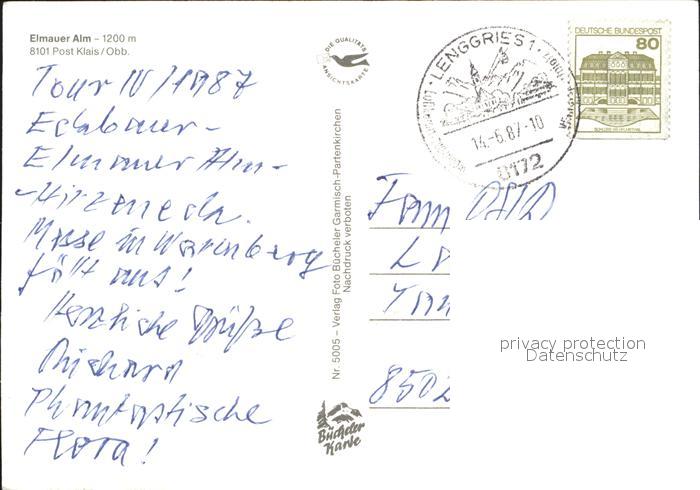 Elmauer Alm – 1200 m
8101 Post Klais / Obb.
Tour IV / 1987
Eckbauer -
Elmauer Alm -
Messe in
fällt aus!
Herzliche Grüße
Richard
Phantastische
Flora!
DIE QUALITÄTS
ANSICHTSKARTE
Nr. 5005 – Verlag Foto Bücheler Garmisch-Partenkirchen
Nachdruck verboten
Bücheler
Karte
LENGGRIES 1
14.-6.87-10
8172
DEUTSCHE BUNDESPOST
80
Fam
8502
privacy protection
Datenschutz